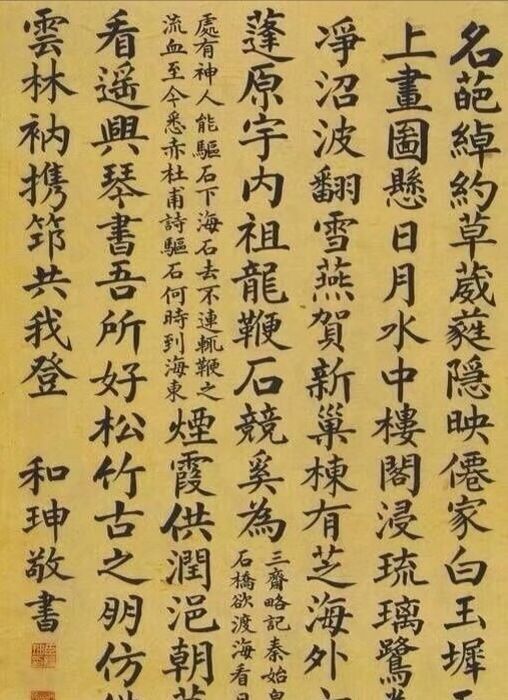 名葩綽約草葳蕤隱映僊家白玉墀
上畫圖懸日月水中樓閣浸琉璃鷺
凈沼波翻雪燕賀新巢棟有芝海外
蓬原宇内祖龍鞭石競奚為
三齋略記秦始皇
石橋欲渡海看日
處有神人能驅石下海石去不連輒鞭之
流血至今悉赤杜甫詩驅石何時到海東
煙霞供潤浥朝
看遥興琴書吾所好松竹古之朋仿
雲林衲携筇共我登
和珅敬書